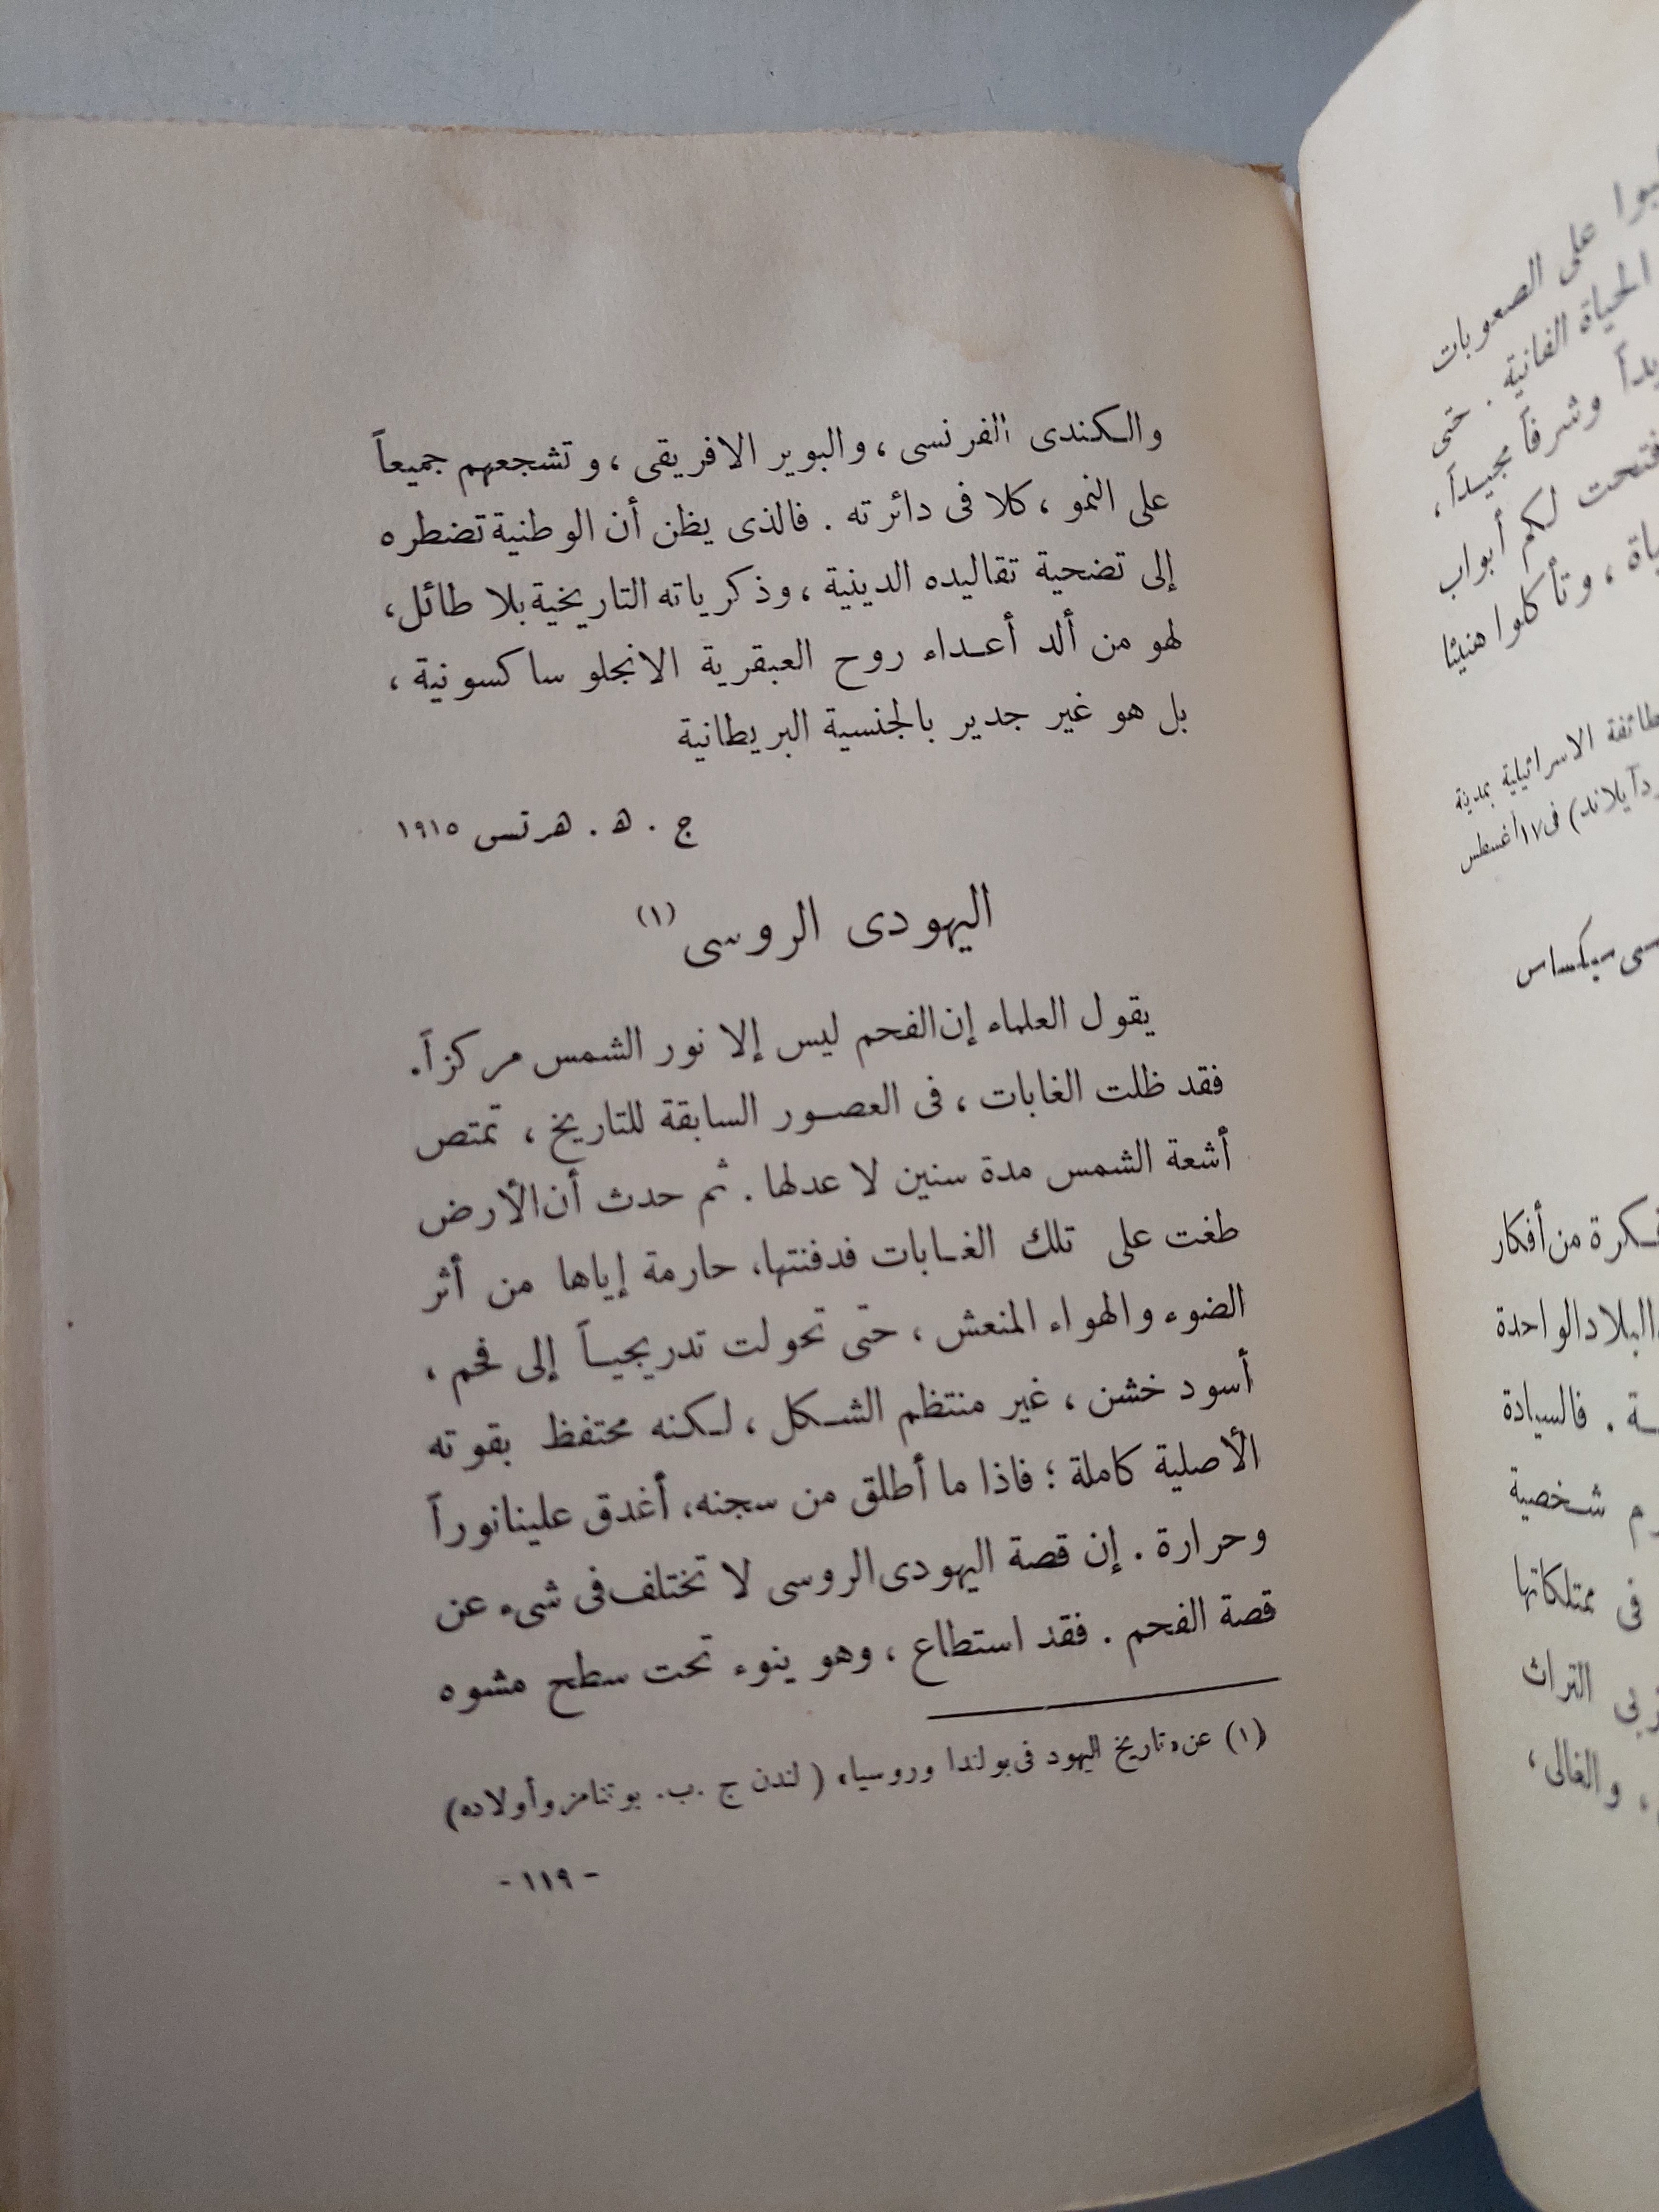 والكندى الفرنسى ، والبوير الافريقى ، وتشجعهم جميعاً
على النمو ، كلا فى دائرته . فالذى يظن أن الوطنية تضطره
إلى تضحية تقاليده الدينية ، وذكرياته التاريخية بلا طائل ،
لهو من ألد أعداء روح العبقرية الانجلو ساكسونية ،
بل هو غير جدير بالجنسية البريطانية
ج . ه . هرتس ١٩١٥
اليهودى الروسى (١)
يقول العلماء إن الفحم ليس إلا نور الشمس مركزاً .
فقد ظلت الغابات ، فى العصور السابقة للتاريخ ، تمتص
أشعة الشمس مدة سنين لا عد لها . ثم حدث أن الأرض
طغت على تلك الغابات فدفنتها ، حارمة إياها من أثر
الضوء والهواء المنعش ، حتى تحولت تدريجياً إلى فحم ،
أسود خشن ، غير منتظم الشكل ، لكنه محتفظ بقوته
الأصلية كاملة ؛ فاذا ما أطلق من سجنه ، أغدق علينا نوراً
وحرارة . إن قصة اليهودى الروسى لا تختلف فى شىء عن
قصة الفحم . فقد استطاع ، وهو ينوء تحت سطح مشوه
(١) عن « تاريخ اليهود فى بولندا وروسيا » ( لندن ج . ب . بوتنامز وأولاده )
- ١١٩ -
على الصعوبات
الحياة الفانية . حتى
وشرفاً مجيداً ،
لكم أبواب
، وتأكلوا هنيئا
الاسرائيلية بمدينة
فى ١٧ أغسطس
سيكساس
من أفكار
البلاد الواحدة
. فالسيادة
شخصية
فى ممتلكاتها
التراث
، والغالى ،